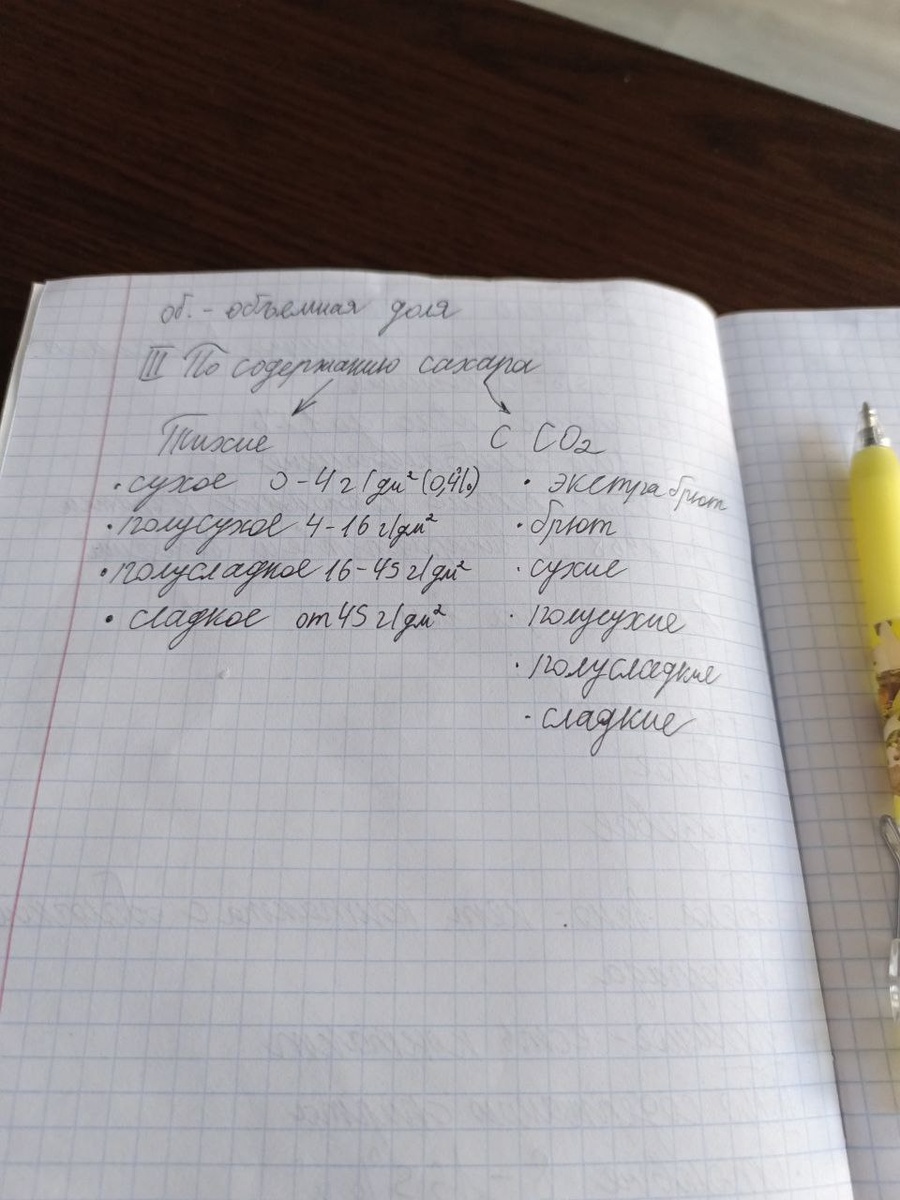 об. - объемная доля
III По содержанию сахара
Тихие
• сухое 0-4 г/дм² (0,4%)
• полусухое 4-16 г/дм²
• полусладкое 16-45 г/дм²
• сладкое от 45 г/дм²
С CO₂
• экстра брют
• брют
• сухие
• полусухие
• полусладкие
• сладкие